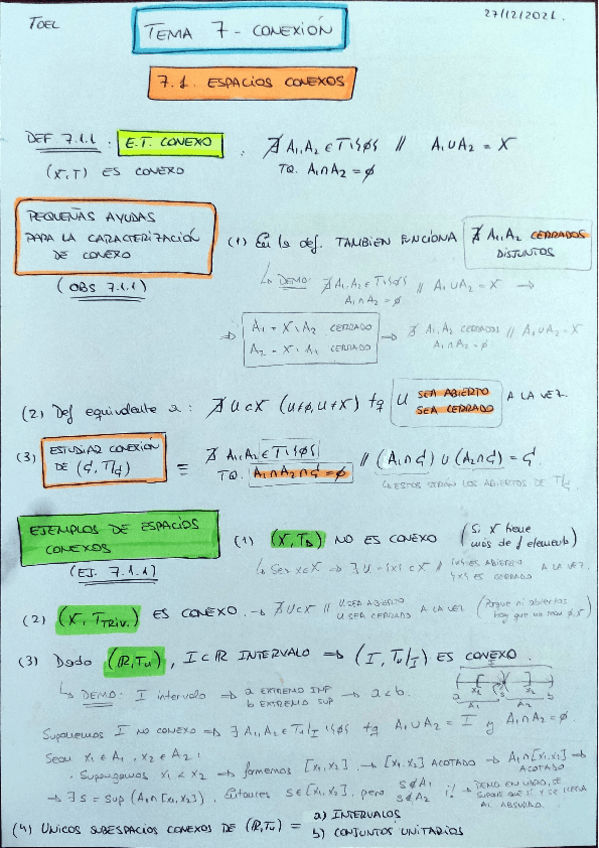 TOEL
TEMA 7 - CONEXIÓN
27/12/2021.
7.1. ESPACIOS CONEXOS
DEF 7.1.1 : E.T. CONEXO : ∄ A₁, A₂ ∈ T\{ø} // A₁ ∪ A₂ = X
(X,T) ES CONEXO TQ. A₁ ∩ A₂ = ø
PEQUEÑAS AYUDAS
PARA LA CARACTERIZACIÓN
DE CONEXO
(OBS 7.1.1)
(1) En la def. TAMBIÉN FUNCIONA ∄ A₁, A₂ CERRADOS
DISJUNTOS
↳ DEMO: ∄ A₁, A₂ ∈ T\{ø} // A₁ ∪ A₂ = X →
A₁ ∩ A₂ = ø
⇒ A₁ = X \ A₂ CERRADO → ∄ A₁, A₂ CERRADOS // A₁ ∪ A₂ = X
A₂ = X \ A₁ CERRADO A₁ ∩ A₂ = ø
(2) Def equivalente a: ∄ U ⊂ X (U ≠ ø, U ≠ X) tq U SEA ABIERTO A LA VEZ
SEA CERRADO
(3) ESTUDIAR CONEXIÓN ≡ ∄ A₁, A₂ ∈ T\{ø} // (A₁ ∩ G) ∪ (A₂ ∩ G) = G.
DE (G, T/G) TQ. A₁ ∩ A₂ ∩ G = ø ESTOS SERÁN LOS ABIERTOS DE T/G
EJEMPLOS DE ESPACIOS
CONEXOS
(EJ. 7.1.1)
(1) (X, T_D) NO ES CONEXO (Si X tiene
más de 1 elemento)
↳ Sea x ∈ X ⇒ ∃ U = {x} ⊂ X // {x} ES ABIERTO A LA VEZ.
{x} ES CERRADO
(2) (X, T_TRIV.) ES CONEXO. → ∄ U ⊂ X // U SEA ABIERTO A LA VEZ (Porque ni abiertos
U SEA CERRADO hay que no sean ø, X)
(3) Dado (ℝ, Tu), I ⊂ ℝ INTERVALO ⇒ (I, Tu/I) ES CONEXO.
↳ DEMO: I intervalo ⇒ a EXTREMO INF → a < b.
b EXTREMO SUP
a x₁ s x₂ b
A₁ A₂
Suponemos I NO CONEXO ⇒ ∃ A₁, A₂ ∈ Tu/I \{ø} tq A₁ ∪ A₂ = I y A₁ ∩ A₂ = ø.
Sean x₁ ∈ A₁, x₂ ∈ A₂:
· Supongamos x₁ < x₂ → formemos [x₁, x₂]. → [x₁, x₂] ACOTADO → A₁ ∩ [x₁, x₂] ACOTADO ⇒
→ ∃ s = sup (A₁ ∩ [x₁, x₂]). Entonces s ∈ [x₁, x₂], pero s ∉ A₁
s ∉ A₂ DEMO EN
SUPONE QUE SÍ Y SE LLEGA
AL ABSURDO.
(4) UNICOS SUBESPACIOS CONEXOS DE (ℝ, Tu) = a) INTERVALOS
b) CONJUNTOS UNITARIOS